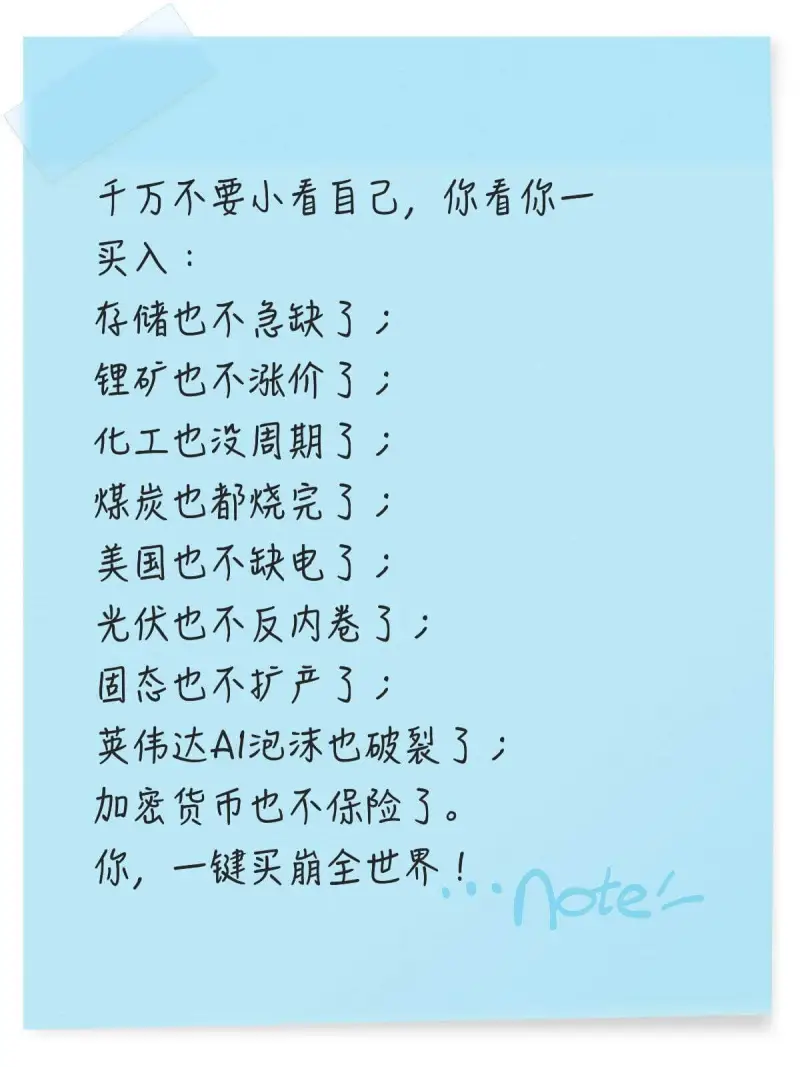 千万不要小看自己，你看你一
买入：
存储也不急缺了；
锂矿也不涨价了；
化工也没周期了；
煤炭也都烧完了；
美国也不缺电了；
光伏也不反内卷了；
固态也不扩产了；
英伟达AI泡沫也破裂了；
加密货币也不保险了。
你，一键买崩全世界！
...note